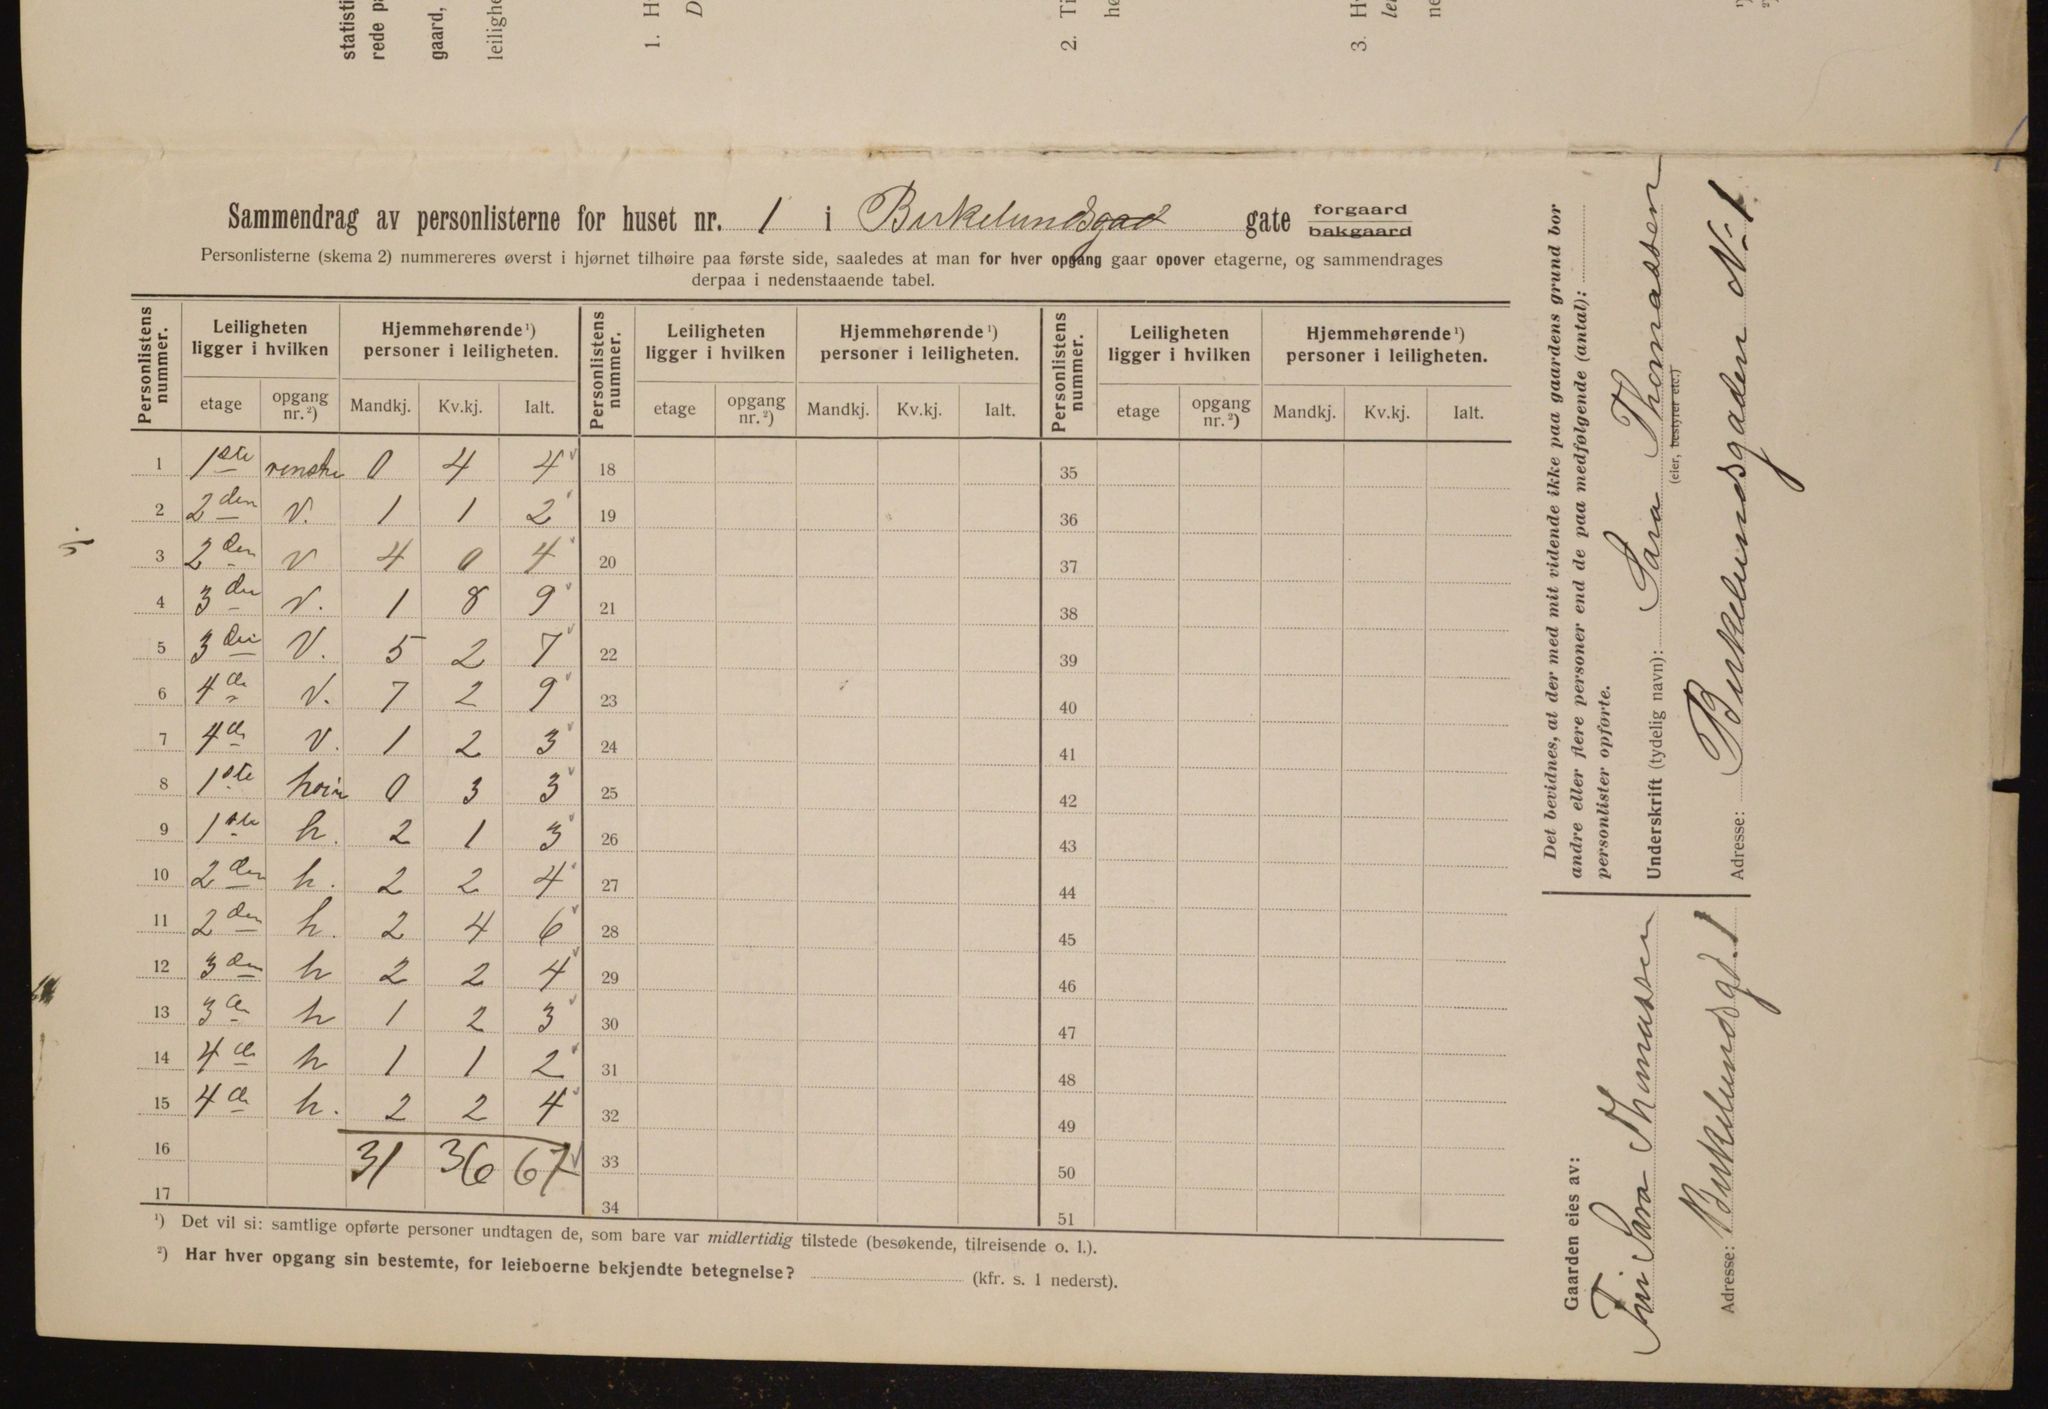 statisti
rede pa
gaard,
leilighe
1. H
D
2. Ti
hø
3. H
lei
ne
Sammendrag av personlisterne for huset nr. 1 i Birkelundsgad gate forgaard bakgaard
Personlisterne (skema 2) nummereres øverst i hjørnet tilhøire paa første side, saaledes at man for hver opgang gaar opover etagerne, og sammendrages
derpaa i nedenstaaende tabel.
Personlistens nummer. Leiligheten ligger i hvilken Hjemmehørende ¹) personer i leiligheten. Personlistens nummer. Leiligheten ligger i hvilken Hjemmehørende ¹) personer i leiligheten. Personlistens nummer. Leiligheten ligger i hvilken Hjemmehørende ¹) personer i leiligheten.
etage opgang nr. ²) Mandkj. Kv.kj. Ialt. etage opgang nr. ²) Mandkj. Kv.kj. Ialt. etage opgang nr. ²) Mandkj. Kv.kj. Ialt.
1 1ste venstre 0 4 4 18 35
2 2den v. 1 1 2 19 36
3 2den v 4 0 4 20 37
4 3die v. 1 8 9 21 38
5 3die V. 5 2 7 22 39
6 4de V. 7 2 9 23 40
7 4de V. 1 2 3 24 41
8 1ste høire 0 3 3 25 42
9 1ste h. 2 1 3 26 43
10 2den h. 2 2 4 27 44
11 2den h. 2 4 6 28 45
12 3den h 2 2 4 29 46
13 3de h 1 2 3 30 47
14 4de h 1 1 2 31 48
15 4de h. 2 2 4 32 49
16 31 36 67 33 50
17 34 51
¹) Det vil si: samtlige opførte personer undtagen de, som bare var midlertidig tilstede (besøkende, tilreisende o. l.).
²) Har hver opgang sin bestemte, for leieboerne bekjendte betegnelse? (kfr. s. 1 nederst).
Det bevidnes, at der med mit vidende ikke paa gaardens grund bor
andre eller flere personer end de paa medfølgende (antal):
personlister opførte.
Underskrift (tydelig navn): Sara Thomassen
(eier, bestyrer etc.)
Adresse: Birkelundsgaden No 1.
Gaarden eies av:
Sara Thomassen
Adresse: Birkelundsgd. 1